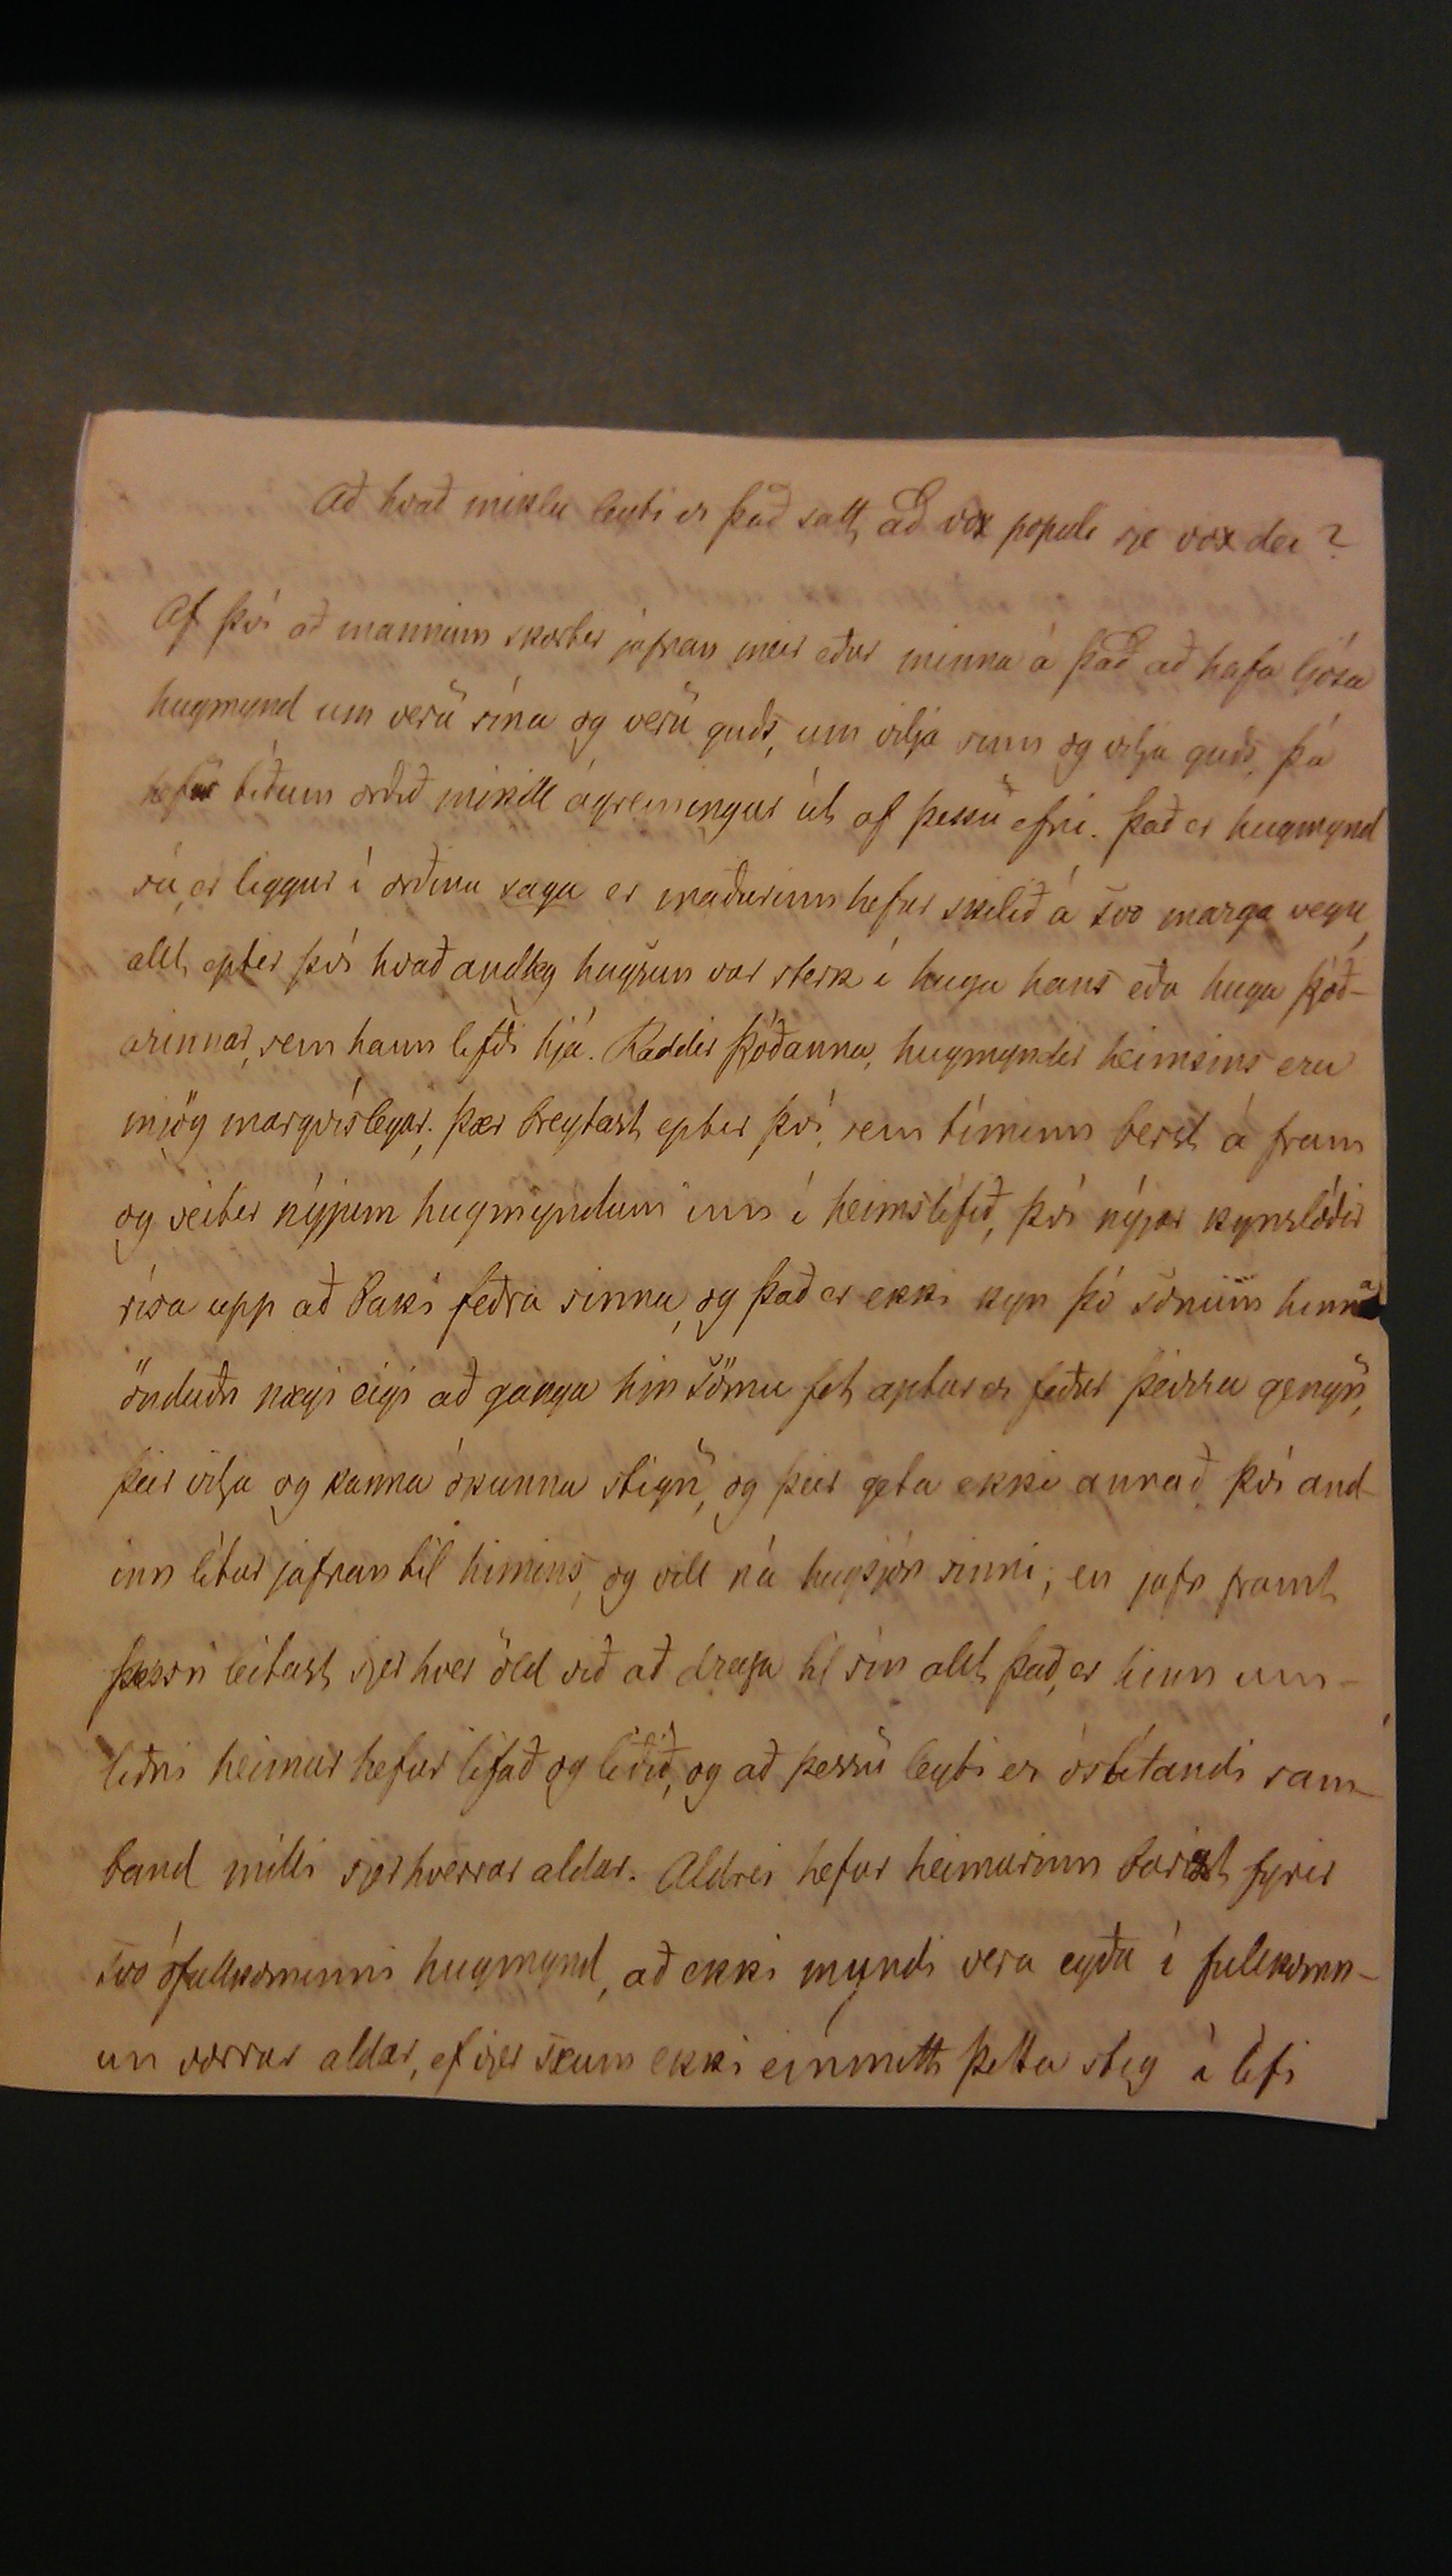 Að hvað miklu leyti er það satt, að vox populi sje vox dei?
Af því að manninn skortir jafnan meir eður minna á það að hafa ljósa
hugmynd um veru sína og veru guðs, um vilja sinn og vilja guðs, þá
hefur tíðum orðið mikill ágreiningur út af þessu efni. Það er hugmynd
sú, er liggur í orðinu saga er maðurinn hefur skilið á svo marga vegu,
allt eptir því hvað andleg hugsun var sterk í huga hans eða huga þjóð-
arinnar, sem hann lifði hjá. Raddir þjóðanna, hugmyndir heimsins eru
mjög margvíslegar; þær breytast eptir því, sem tíminn berst á fram
og veitir nýjum hugmyndum inn í heimslífið, því nýjar kynslóðir
rísa upp að baki feðra sinna, og það er ekki kyn þó sonum hinna
önduðu nægi eigi að ganga hin sömu fet aptur er feður þeirra gengu,
þeir vilja og kanna ókunna stigu, og þeir geta ekki annað, því and-
inn lítur jafnan til himins, og vill ná hugsjón sinni; en jafn framt
þessu leitast sjer hver öld við að draga til sín allt það, er hinn um-
liðni heimur hefur lifað og liðið, og að þessu leyti er óslítandi sam-
band milli sjerhverrar aldar. Aldrei hefur heimurinn barizt fyrir
svo ófullkominni hugmynd, að ekki mundi vera eyða í fullkomn-
un vorrar aldar, ef vjer sæum ekki einmitt þetta stig í lífi